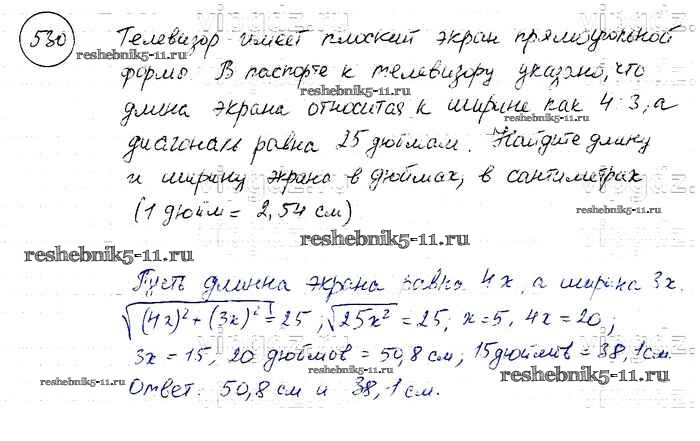 530 Телевизор имеет плоский экран прямоугольной
reshebnik5-11.ru
формы. В паспорте к телевизору указано, что
reshebnik5-11.ru
длина экрана относится к ширине как 4:3, а
диагональ равна 25 дюймам. Найдите длину
и ширину экрана в дюймах, в сантиметрах
(1 дюйм = 2,54 см)
reshebnik5-11.ru
reshebnik5-11.ru
Пусть длинна экрана равна 4x, а ширина 3x.
√(4x)²+(3x)² = 25; √25x² = 25; x=5, 4x=20;
3x=15, 20 дюймов = 50,8 см; 15 дюймов = 38,1 см.
reshebnik5-11.ru
reshebnik5-11.ru
Ответ: 50,8 см и 38,1 см.